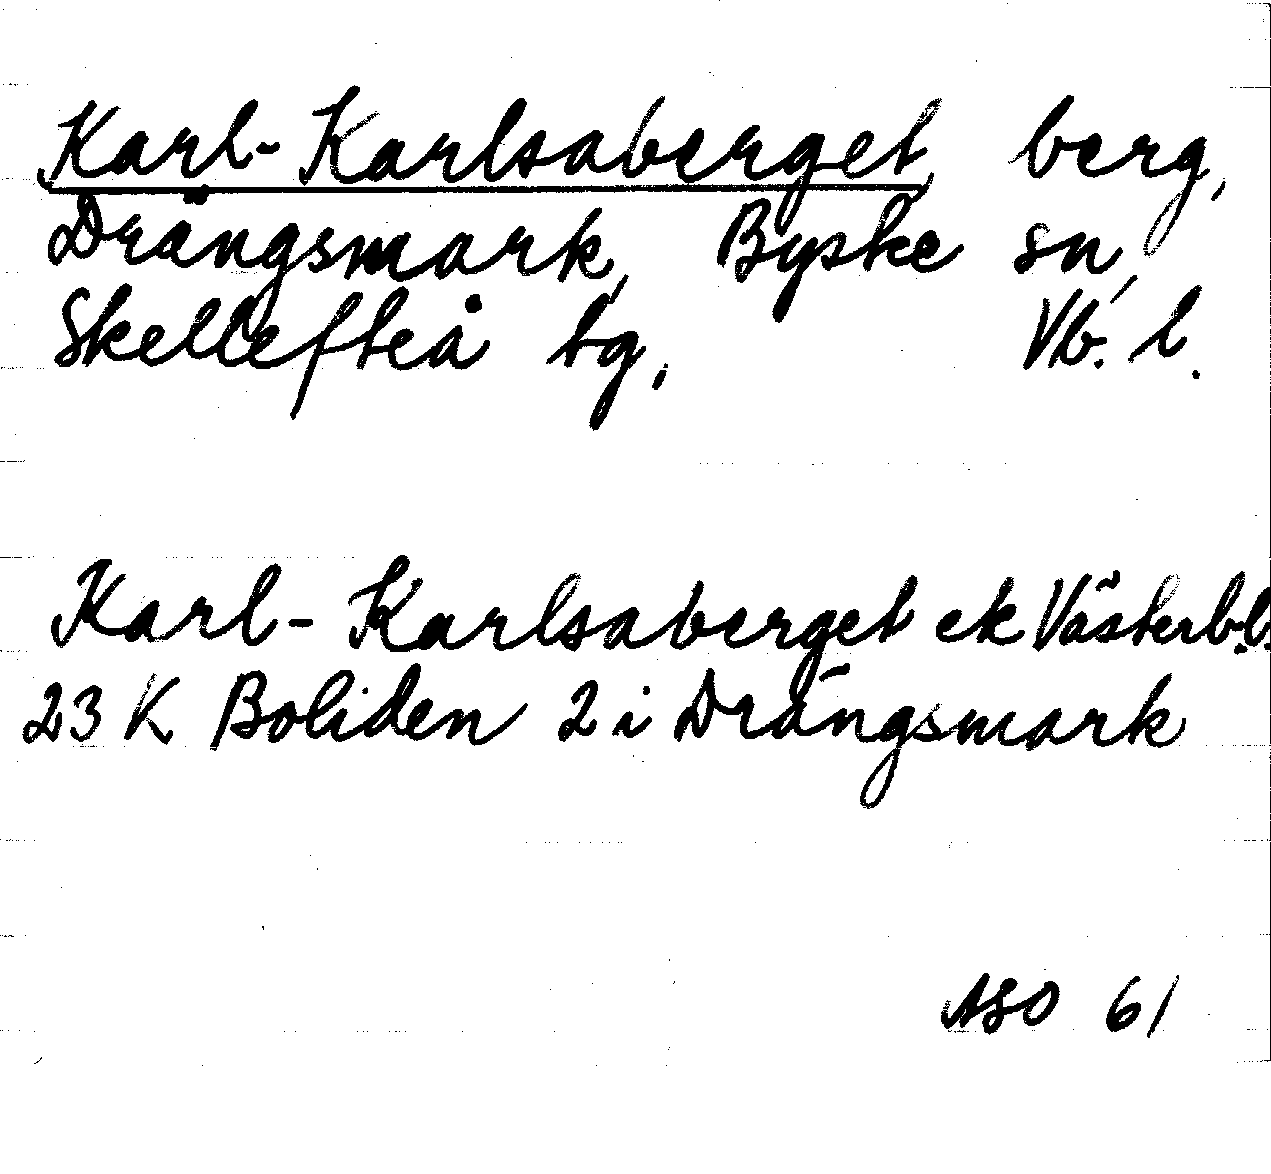 Karl-Karlsaberget, berg,
Drängsmark, Byske sn,
Skellefteå tg, Vb. l.
Karl-Karlsaberget ek Västerb. l.
23 K Boliden 2 i Drängsmark
ASO 61